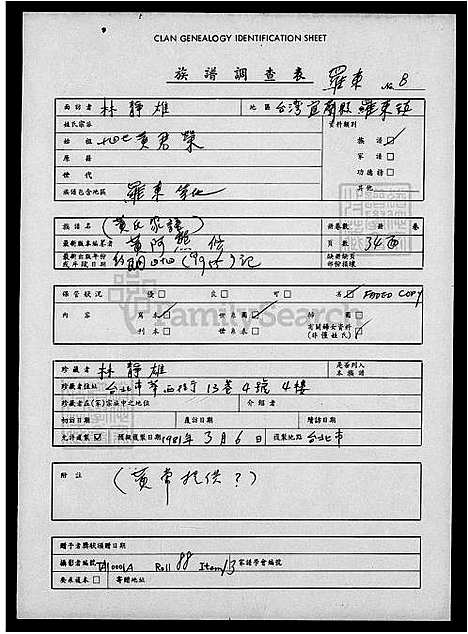 CLAN GENEALOGY IDENTIFICATION SHEET
族譜調查表 羅東 No 8
面訪者 林靜雄 地區 台灣宜蘭縣羅東鎮
姓氏宗谷 資料類別
始祖 黃君榮 族譜
原籍 家譜
世代 功德榜
族譜包含地區 羅東 其他
族譜名 (黃氏家譜) 冊卷數 冊 卷
最新版本編著者 黃阿熊 頁數 34面
最新出版年份或年限日期 (1955)記 缺冊缺頁部份損壞
保管狀況 優 良 可 劣 FADED COPY
內容 寫本 世系圖 歸圖
刊本 世系表 有關婦女資料(非僅姓氏)
珍藏者 林靜雄 是否列入本族譜
珍藏者住址 台北市華西街13巷4號4樓
珍藏者在(家)宗族中之地位 介紹者
初訪日期 復訪日期 續訪日期
允許複製 預擬複製日期 1981年3月6日 複製地點 台北市
附註 (黃常提供?)
贈予者獎狀頒贈日期
攝影者編號 TA10001A Roll 88 Item 13 家譜學會編號
要求複本 寄贈地址
FamilySearch